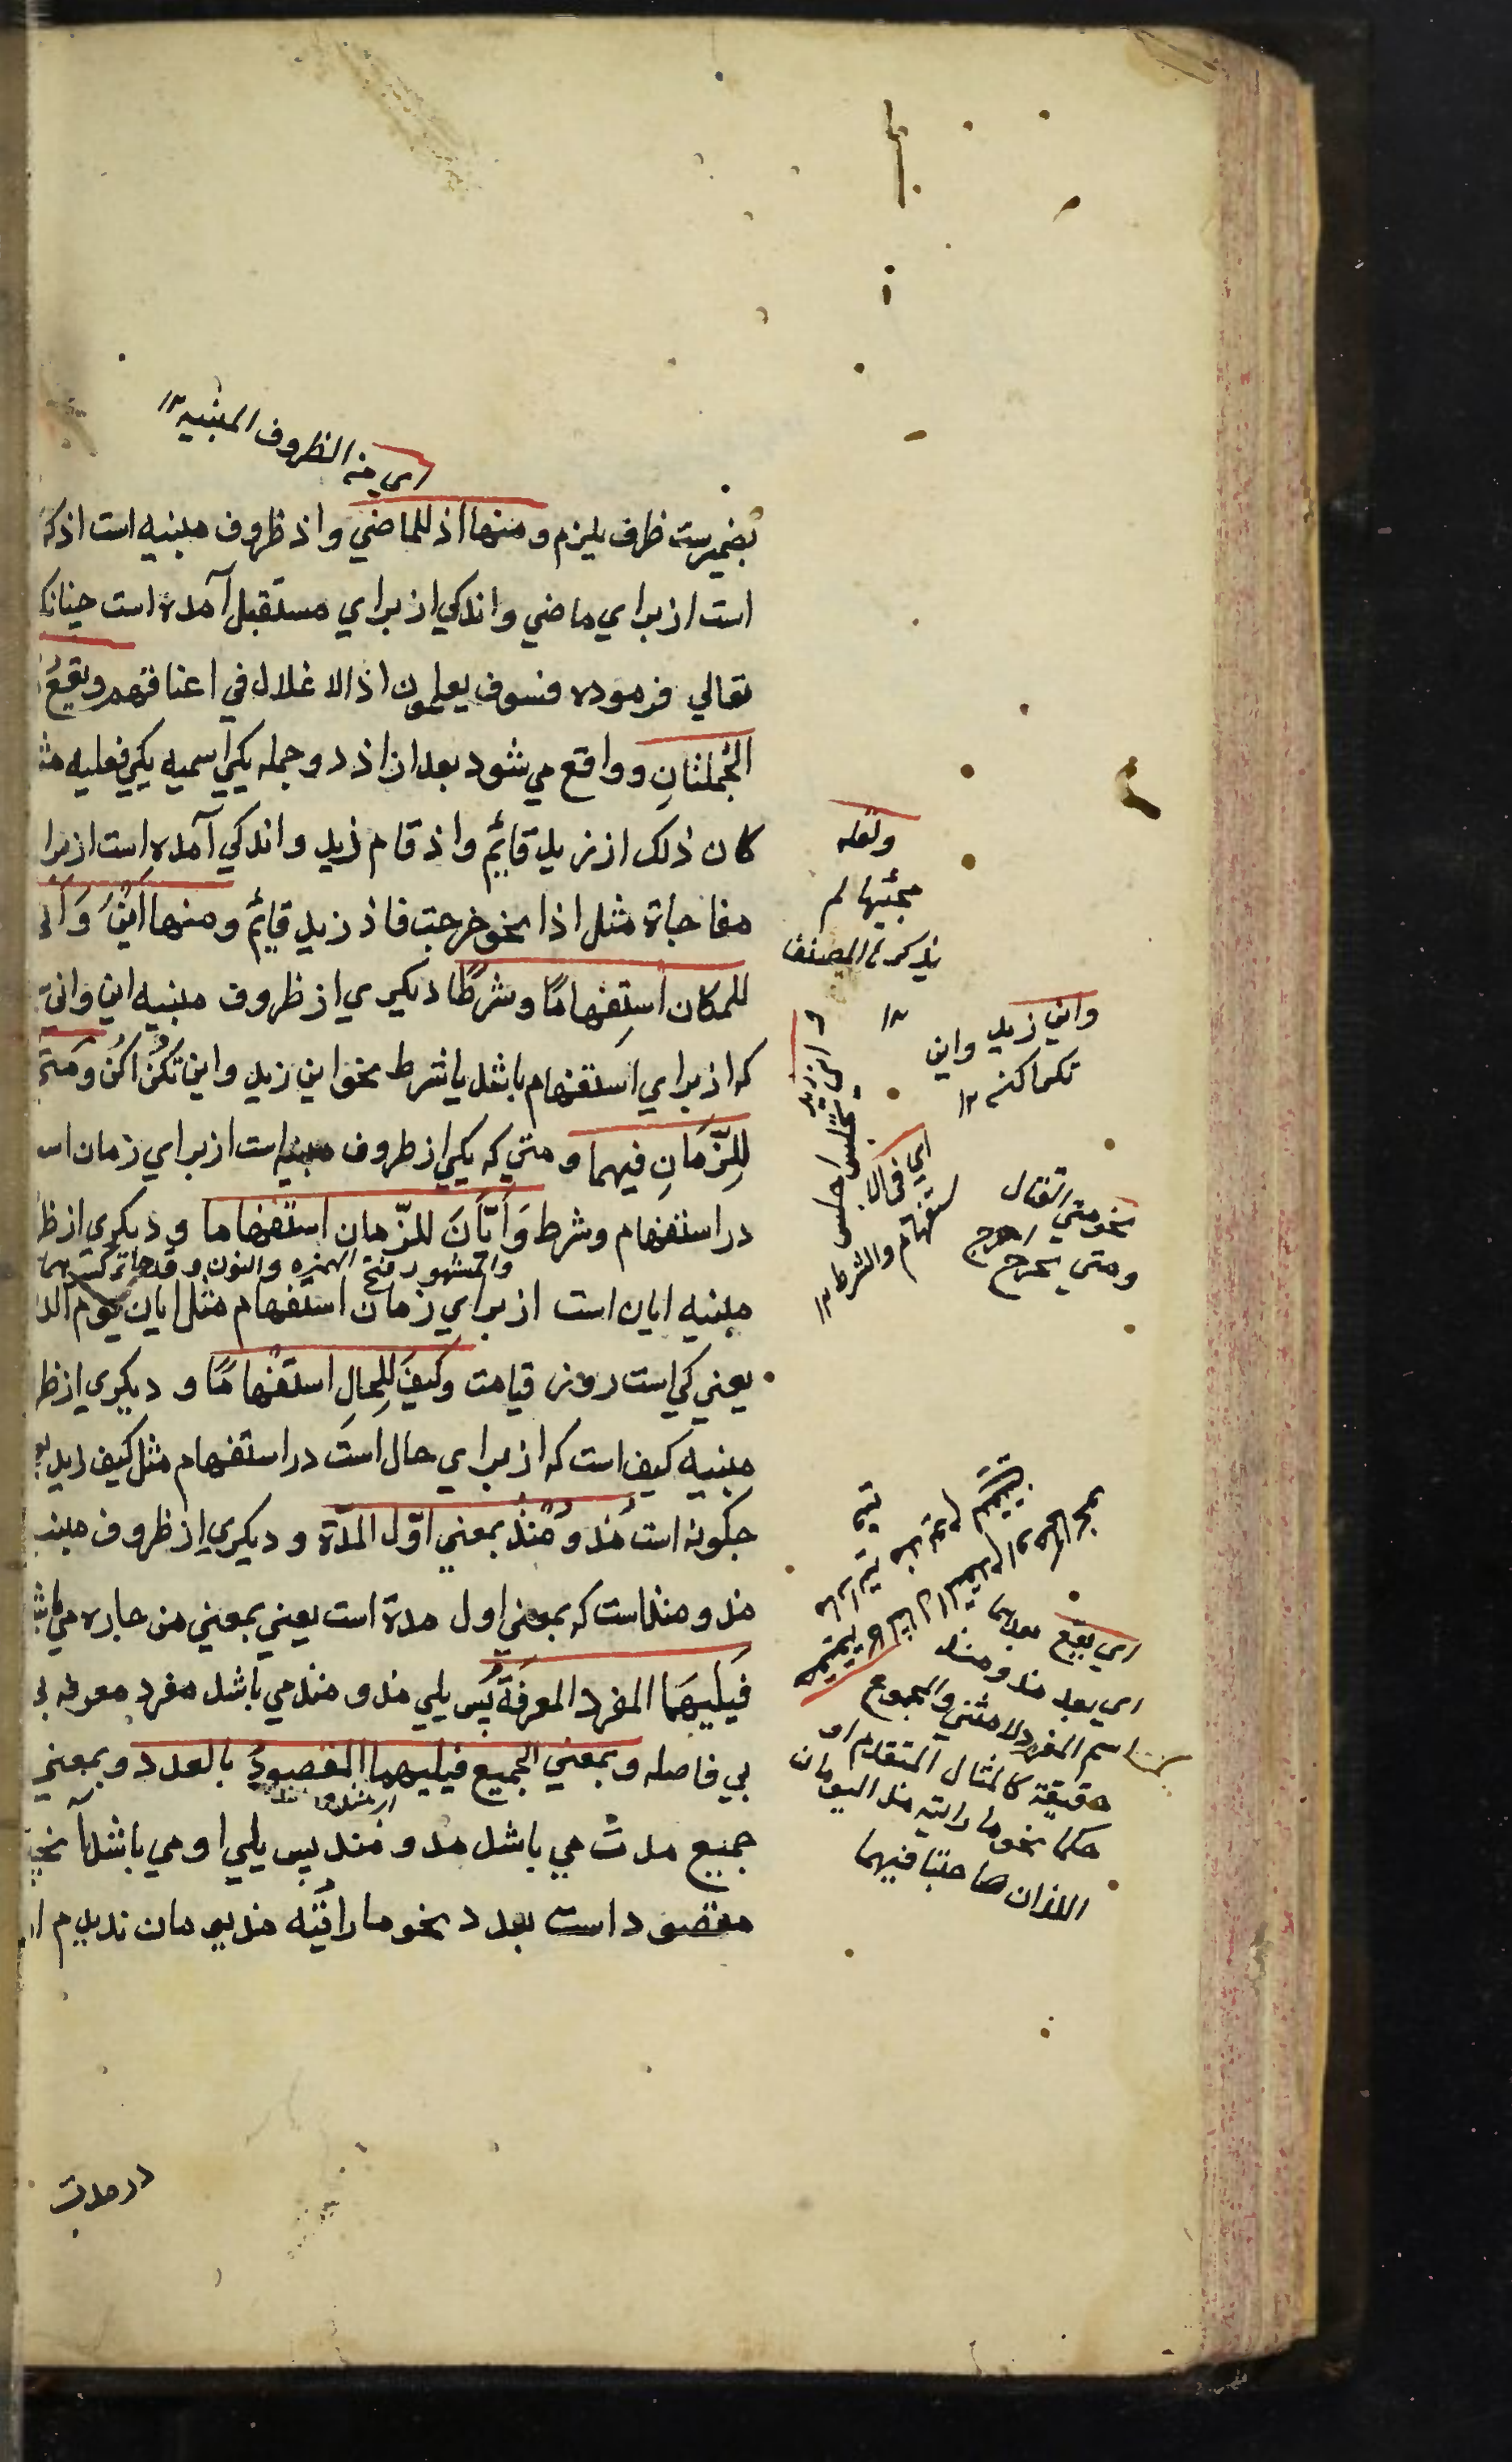 اي من الظروف المبنيه ۱۲
بضميرست ظرف يليزم ومنها اذ للماضي واذ ظروف مبنيه است اذ كه
است از براي ماضي واندكي از براي مستقبل آمده است چنانك
تعالي فرموده فسوف يعلمون اذ الاغلال في اعناقهم ويقع
الجملتان وواقع مي شود بعد ان اذ دو جمله يكي اسميه يكي فعليه مث
كان ذلك اذ زيد قايم واذ قام زيد واندكي آمده است از برا
مفاجاة مثل اذا نحو خرجت فاذ زيد قايم ومنها اين واني
للمكان استفهاما وشرطا ديكري از ظروف مبنيه اين واني
كه از براي استفهام باشد يا شرط نحو اين زيد واين تكن اكن ومتي
للزمان فيهما و متي كه يكي از ظروف مبنيه است از براي زمان اس
در استفهام وشرط وايان للزمان استفهاما و ديكري از ظ
والمشهور فتح الهمزه والنون وقد جاء كسرهما
مبنيه ايان است از براي زمان استفهام مثل ايان يوم الد
يعني كي است روز قيامت وكيف للحال استفهاما و ديكري از ظ
مبنيه كيف است كه از براي حال است در استفهام مثل كيف زيد يع
چكونه است مذ ومنذ بمعني اول المدة و ديكري از ظروف مبنيـ
مذ و منذ است كه بمعني اول مدة است يعني بمعني من جاره مي باش
فيليهما المفرد المعرفة پس يلي مذ و منذ مي باشد مفرد معرفه
بي فاصله وبمعني الجميع فيليهما المقصود بالعدد وبمعني
جميع مدت مي باشد مذ و منذ پس يلي او مي باشد آنچه
مقصود است بعدد نحو ما رايته منذ يومان نديدم او
در مدت
ولعله
مجئيها لم
يذكره المصنف
۱۲
واين زيد واين
تكن اكن ۱۲
اي في الا
ستفهام والشرط ۱۲
نحو متي القتال
ومتي يخرج اخرج
اي يقع بعدهما
اي بعد مذ ومنذ
اسم المفرد لا مثني والمجموع
حقيقة كالمثال المتقدم او
حكما نحو ما رايته منذ اليومان
اللذان صاحبنا فيهما